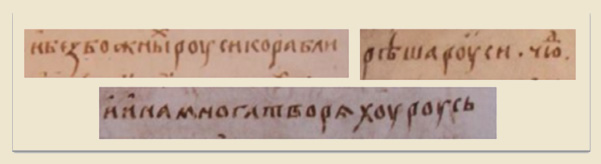 ибезбожныїроусикорабли
рѣшароуси · что̑.
ӥинамногатворѧхоуроусь